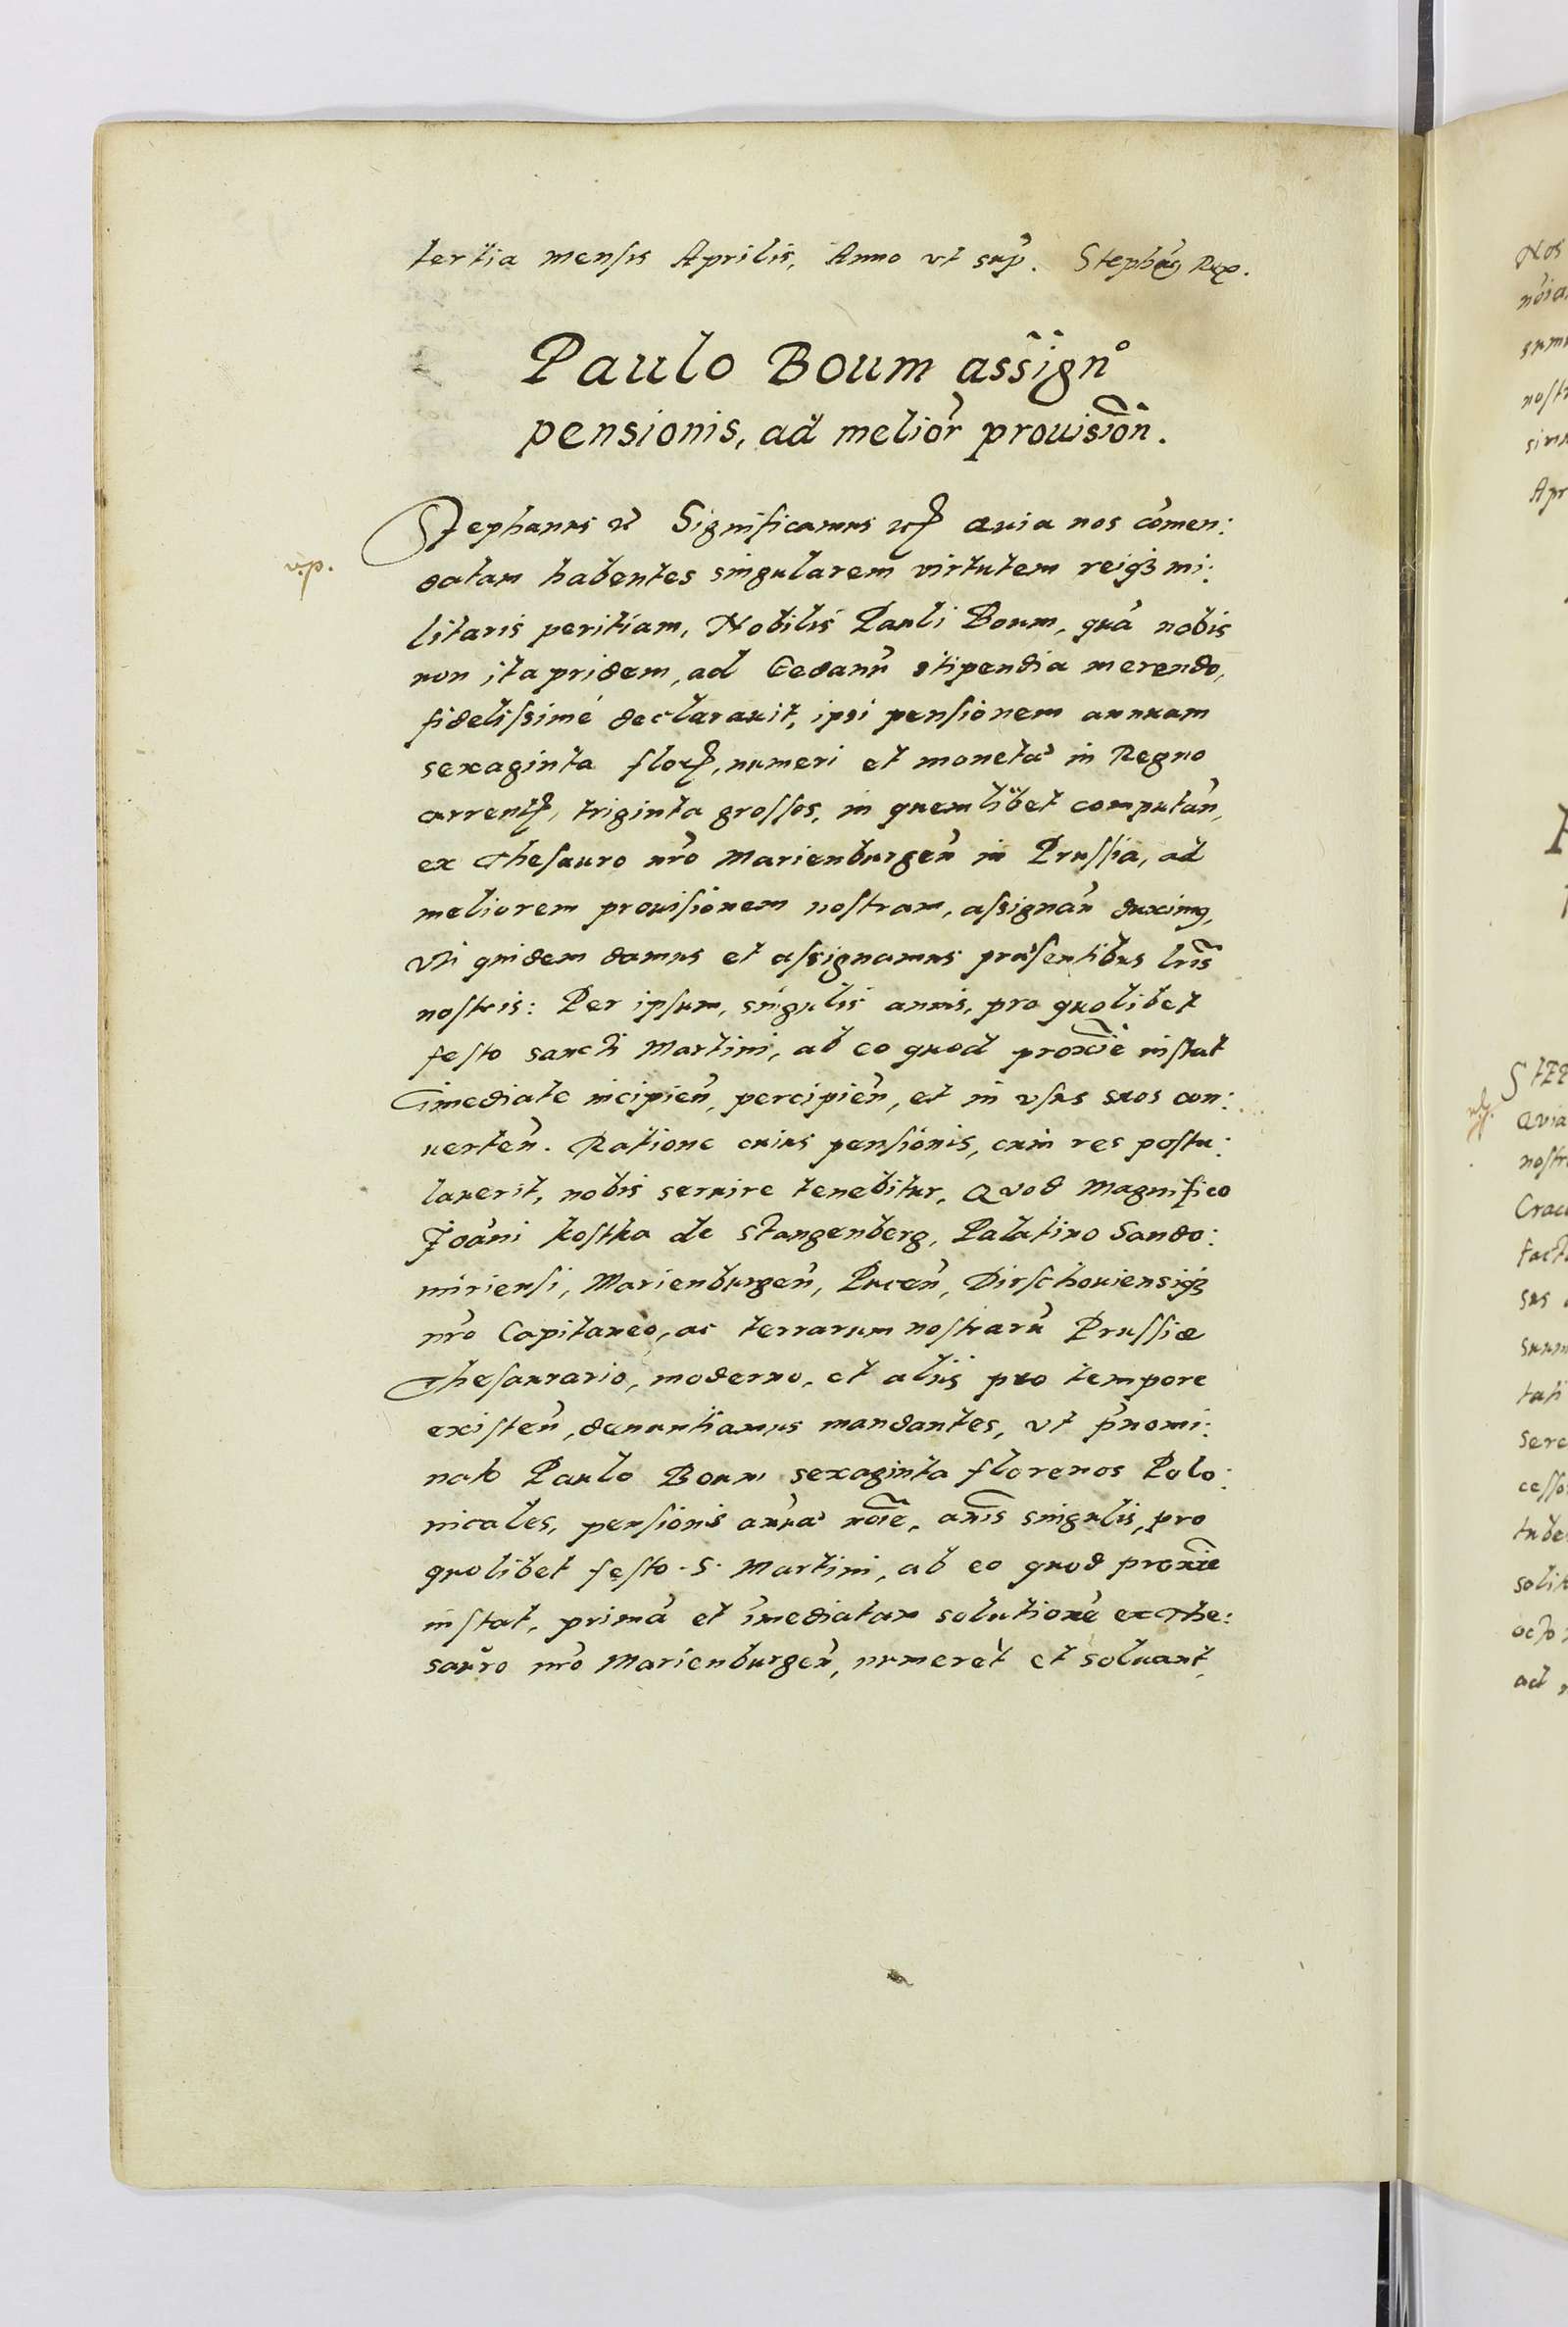 tertia mensis Aprilis, Anno vt sup̃. Stephãg Rex.
Paulo Boum assign°
pensionis, ad melior̃ prouisiõn.
v.p.
Stephanus &c Significamus &c Quia nos cõmen:
datam habentes singularem virtutem reiq3 mi:
litaris peritiam, Nobilis Pauli Boum, quã nobis
non ita pridem, ad Gedanũ stipendia merendo,
fidelissimé declarauit, ipsi pensionem annuam
sexaginta flor, numeri et moneta in Regno
current, triginta grossos, in quemlibet computãn,
ex Thesauro nr̃o Marienburgeñ in Prussia, ad
meliorem prouisionem nostram, assignañ duximg,
Vti quidem damus et assignamus præsentibus lr̃is
nostris: Per ipsum, singulis annis, pro quolibet
festo sancti Martini, ab eo quod proxiẽ instat
im̃ediate incipieñ, percipieñ, et in vsus suos con:
uerteñ. Ratione cuius pensionis, cum res postu:
lauerit, nobis seruire tenebitur, Quod Magnifico
Joãni kostka de Stangenberg, Palatino Sando:
miriensi, Marienburgeñ, Puceñ, Dirschouiensiq3
nr̃o Capitaneo, ac terrarum nostrarũ Prussiæ
Thesaurario, moderno, et aliis pro tempore
existeñ, denuntiamus mandantes, vt p̃nomi:
nato Paulo Boum sexaginta florenos Polo:
nicales, pensionis añua noiẽ, añis singulis, pro
quolibet festo S. Martini, ab eo quod proxiẽ
instat, primã et im̃ediatam solutionẽ ex The:
sauro nr̃o Marienburgeñ, numerẽt et soluant,
Nos
nõia
sum
nostr
Apr
STEP
Quia
nostr
Crac
fact
sus
summ
tati
cesso
tube
solit
octo
ad